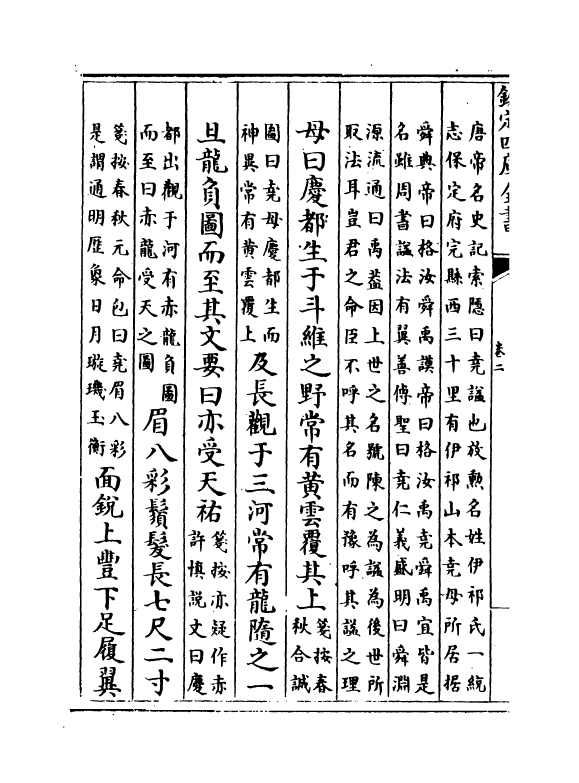 欽定四庫全書
卷二
唐帝名史記索隱曰堯諡也放勲名姓伊祁氏一統
志保定府完縣西三十里有伊祁山本堯母所居据
舜典帝曰格汝舜禹謨帝曰格汝禹堯舜禹宜皆是
名雖周書諡法有翼善傳聖曰堯仁義盛明曰舜淵
源流通曰禹葢因上世之名號陳之為諡為後世所
取法耳豈君之命臣不呼其名而有豫呼其諡之理
母曰慶都生于斗維之野常有黄雲覆其上箋按春
秋合誠
圖曰堯母慶都生而
神異常有黄雲覆上及長觀于三河常有龍隨之一
旦龍負圖而至其文要曰亦受天祐箋按亦疑作赤
許慎説文曰慶
都出觀于河有赤龍負圖
而至曰赤龍受天之圖眉八彩鬚髮長七尺二寸
箋按春秋元命包曰堯眉八彩
是謂通明歴象日月璇璣玉衡面鋭上豐下足履翼